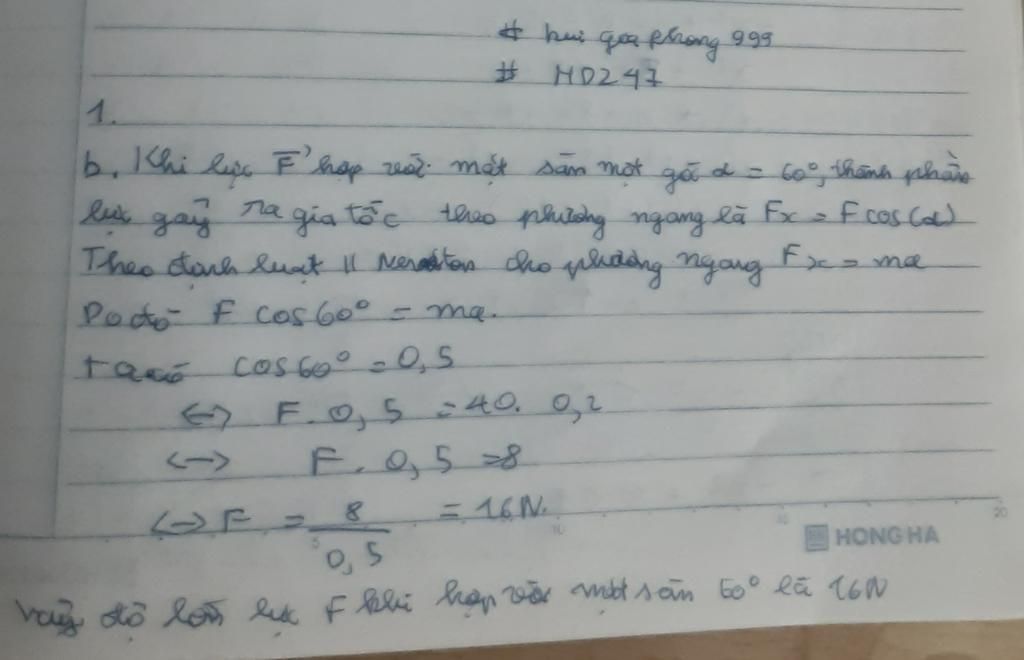 # hui qea phong 999
# HD247
1.
b. Khi lực F hợp với mặt sàn một góc α = 60°, thành phần
lực gây ra gia tốc theo phương ngang là Fx = F cos(α)
Theo định luật II Newton cho phương ngang Fx = ma
Do đó F cos60° = ma.
ta có cos60° = 0,5
<-> F. 0,5 = 40. 0,2
<-> F. 0,5 = 8
<-> F = 8/0,5 = 16N.
HONG HA
Vậy độ lớn lực F khi hợp với mặt sàn 60° là 16N